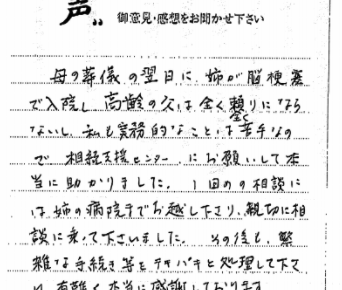 声
御意見・感想をお聞かせ下さい
母の葬儀の翌日に、姉が脳梗塞
で入院し 高齢の父は全く頼りになら
ないし、私も実務的なことは全く苦手なの
で 相続支援センター にお願いして本
当に助かりました。 1回目の相談に
は姉の病院までお越し下さり、親切に相
談に乗って下さいました。 その後も、繁
雑な手続き等をテキパキと処理して下さ
り 有難く本当に感謝しております